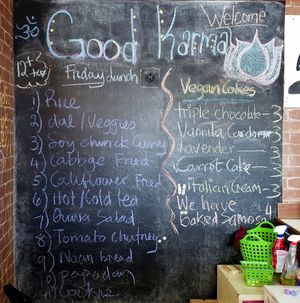 ॐ
Good Karma
Welcome
12+ tax
Friday lunch
1) Rice
2) dal/Veggies
3) Soy chunck Curry
4) Cabbge Fried
5) Califlower Fried
6) Hot/Cold tea
7) Quinua Salad
8) Tomato Chutney
9) Naan bread
10) papadan
11) Cookie
Vegan Cakes
triple chocolate - 3
Vannila Cardamom
Lavender - 3
Carrot Cake - 3
Italian Cream - 3
We have
Baked Samosa 4